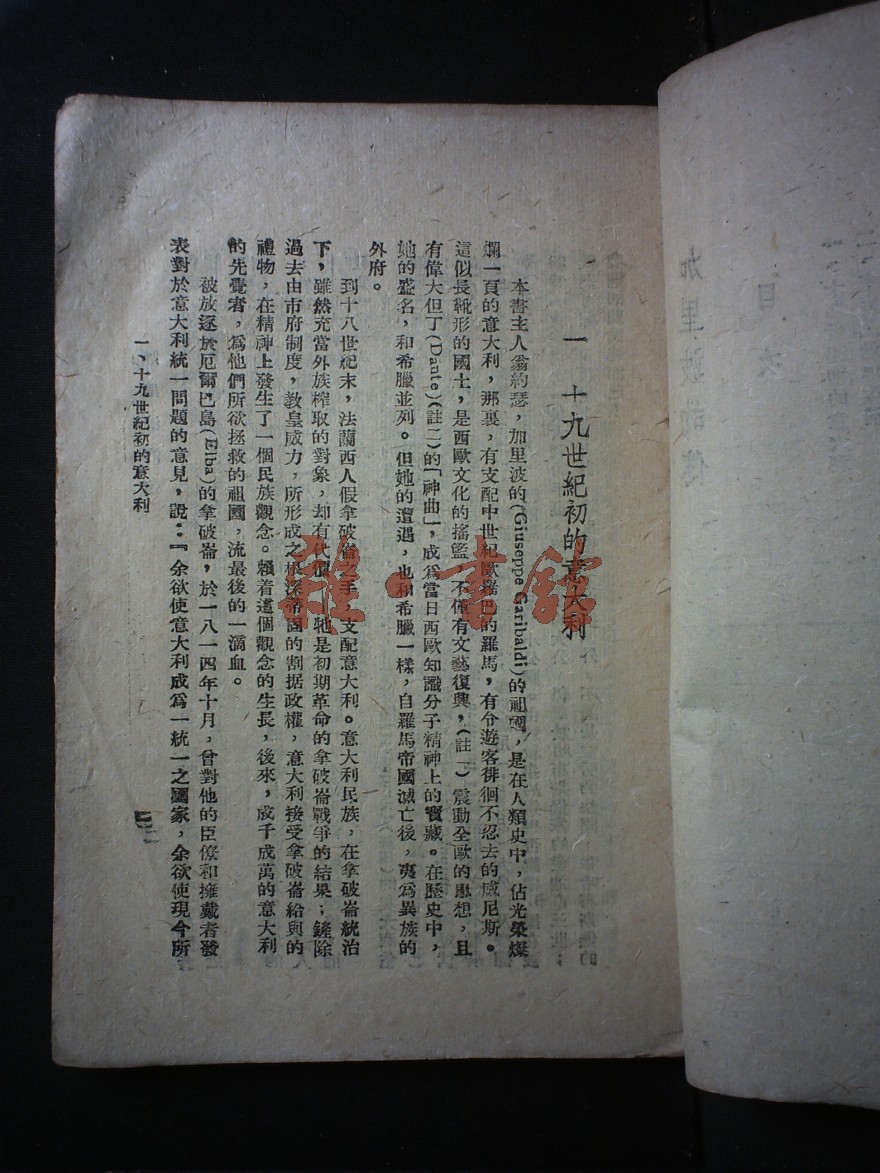 一 十九世紀初的意大利
本書主人翁約瑟，加里波的(Giuseppe Garibaldi)的祖國，是在人類史中，佔光榮燦
爛一頁的意大利，那裏，有支配中世紀歐羅巴的羅馬，有令遊客徘徊不忍去的威尼斯。
這似長靴形的國土，是西歐文化的搖籃，不僅有文藝復興，(註一)震動全歐的思想，且
有偉大但丁(Dante)(註二)的「神曲」，成爲當日西歐知識分子精神上的寶藏。在歷史中，
她的盛名，和希臘並列。但她的遭遇，也和希臘一樣，自羅馬帝國滅亡後，夷爲異族的
外府。
到十八世紀末，法蘭西人假拿破崙之手，支配意大利。意大利民族，在拿破崙統治
下，雖然充當外族榨取的對象，却有代價，牠是初期革命的拿破崙戰爭的結果；鏟除
過去由市府制度，教皇威力，所形成之根深帝固的割据政權，意大利接受拿破崙給與的
禮物，在精神上發生了一個民族觀念。賴着這個觀念的生長，後來，成千成萬的意大利
的先覺者，爲他們所欲拯救的祖國，流最後的一滴血。
被放逐於厄爾巴島(Elba)的拿破崙，於一八一四年十月，曾對他的臣僚和擁戴者發
表對於意大利統一問題的意見，說：『余欲使意大利成爲一統一之國家，余欲使現今所
一、十九世紀初的意大利
雜·書館